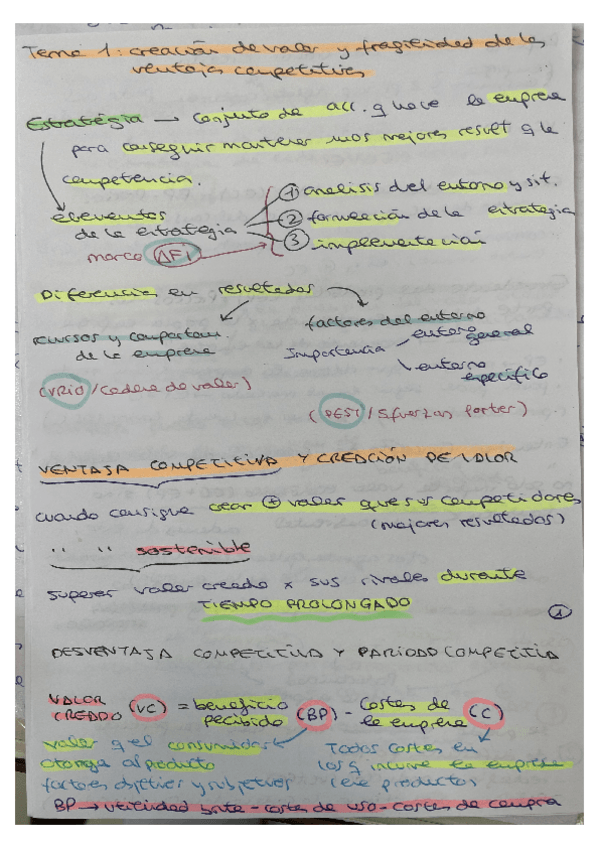 Tema 1: creación de valor y fragilidad de las
ventajas competitivas
Estrategia → Conjunto de acc. q hace la empresa
para conseguir mantener unos mejores result q la
competencia.
elementos
de la estrategia
1 análisis del entorno y sit.
2 formulación de la estrategia
3 implementación
marco AFI
Diferencia en resultados
recursos y comportam.
de la empresa
factores del entorno
Importancia
entorno general
entorno específico
(VRIO / Cadena de valor)
(PEST / 5 fuerzas porter)
VENTAJA COMPETITIVA Y CREACIÓN DE VALOR
cuando consigue crear + valor que sus competidores
(mejores resultados)
" " " sostenible
superar valor creado x sus rivales durante
TIEMPO PROLONGADO
1
DESVENTAJA COMPETITIVA Y PARIDAD COMPETITIVA
VALOR CREADO (VC) = beneficio percibido (BP) - Costes de la empresa (C)
valor q el consumidor
otorga al producto
factores objetivos y subjetivos
Todos costes en
los q incurre la empresa
BP → utilidad bruta - costes de uso - costes de compra